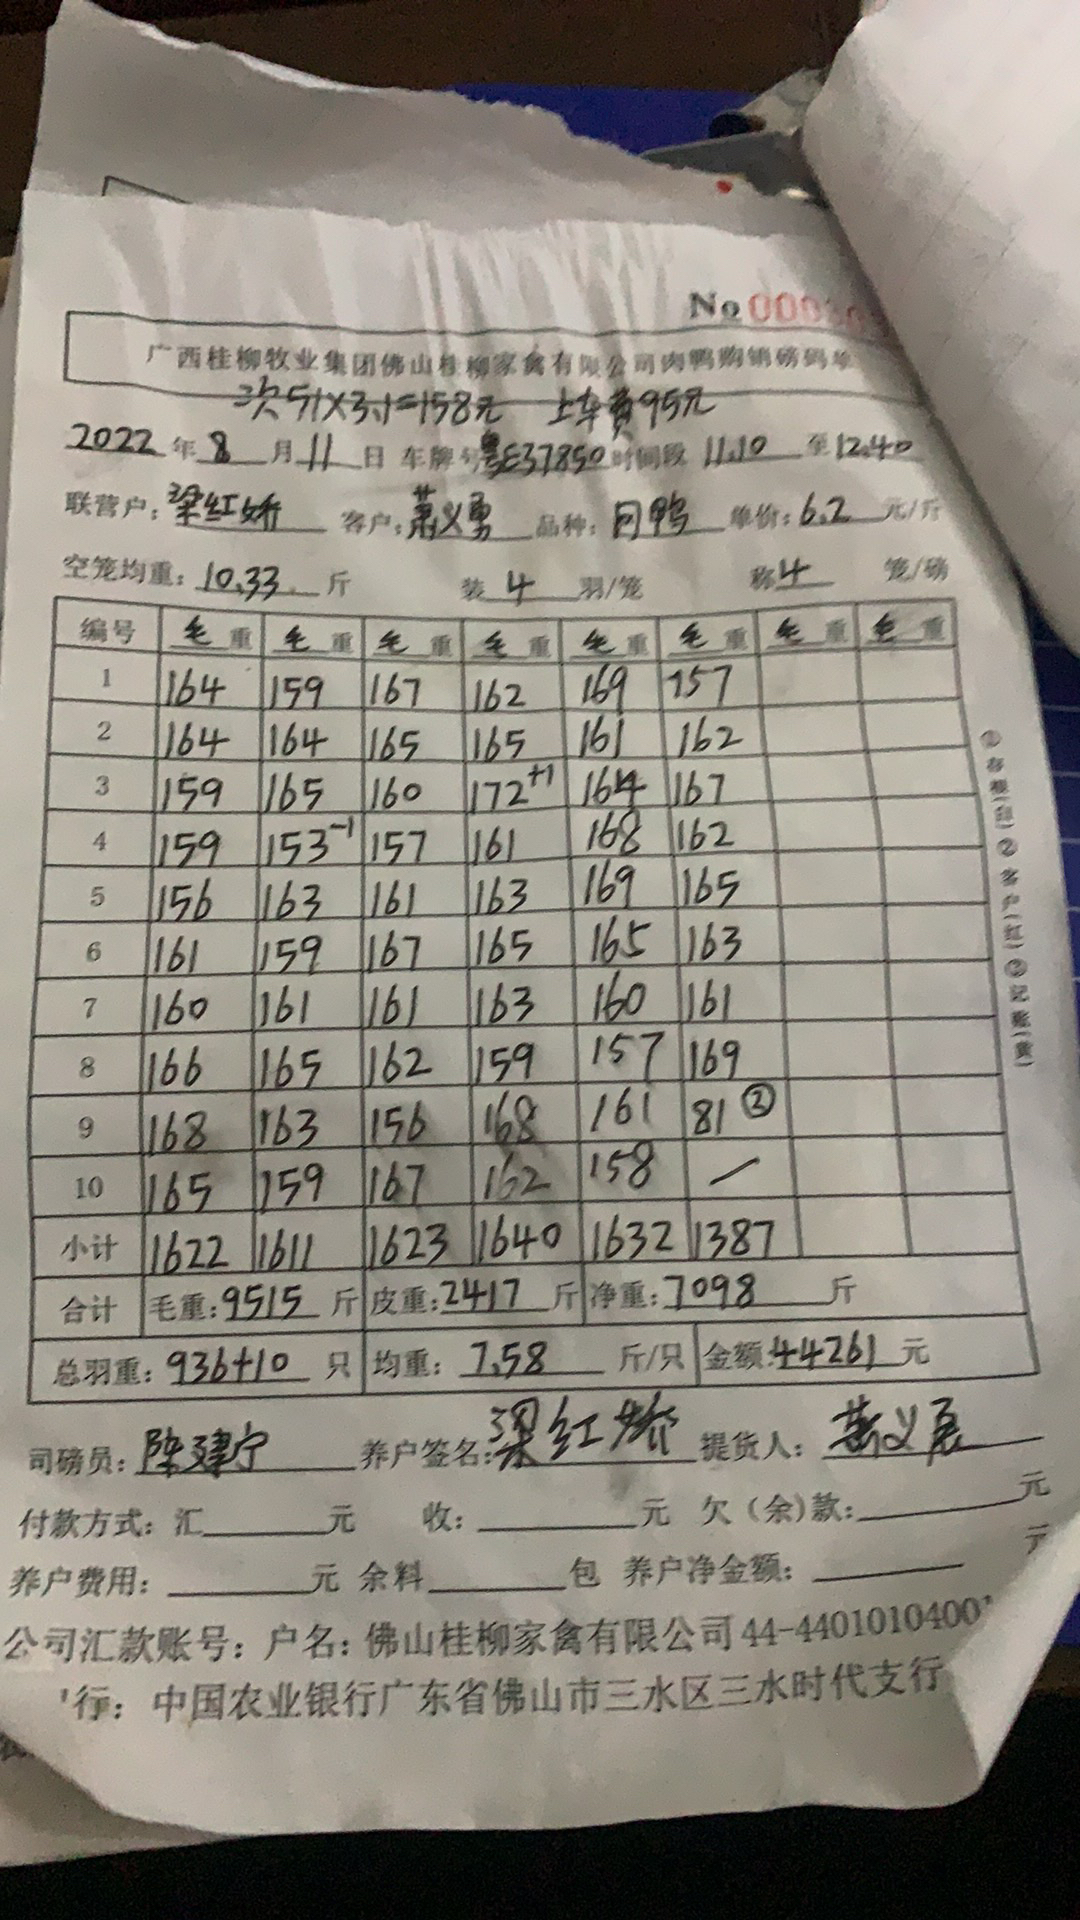 No 000
广西桂柳牧业集团佛山桂柳家禽有限公司肉鸭购销磅码单
次51×3.1=158元 上车费95元
2022年8月11日 车牌号粤E37850时间段11.10至12.40
联营户:梁红娇 客户:萧义勇 品种: 单价:6.2元/斤
空笼均重:10.33斤 装4羽/笼 称4笼/磅
编号 毛重 毛重 毛重 毛重 毛重 毛重 毛重 毛重
1 164 159 167 162 169 157
2 164 164 165 165 161 162
3 159 165 160 172+1 164 167
4 159 153-1 157 161 168 162
5 156 163 161 163 169 165
6 161 159 167 165 165 163
7 160 161 161 163 160 161
8 166 165 162 159 157 169
9 168 163 156 168 161 81②
10 165 159 167 162 158 /
小计 1622 1611 1623 1640 1632 1387
合计 毛重:9515斤 皮重:2417斤 净重:7098斤
总羽重:936+10只 均重:7.58斤/只 金额:44261元
司磅员:陈建宁 养户签名:梁红娇 提货人:
付款方式:汇元 收:元 欠(余)款:元
养户费用:元 余料包 养户净金额:元
公司汇款账号:户名:佛山桂柳家禽有限公司 44-4401010400
行:中国农业银行广东省佛山市三水区三水时代支行
①存根(白)②客户(红)③记账(黄)